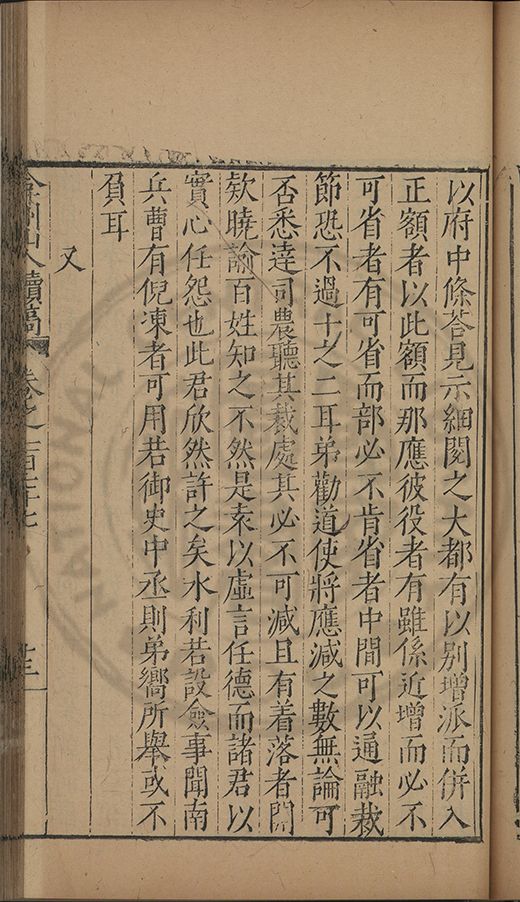 以府中條荅見示細閱之大都有以别增派而併入
正額者以此額而那應彼役者有雖係近增而必不
可省者有可省而部必不肯省者中間可以通融裁
節恐不過十之二耳弟勸道使將應減之數無論可
否悉達司農聽其裁處其必不可減且有着落者開
欵曉諭百姓知之不然是袁以虛言任德而諸君以
實心任怨也此君欣然許之矣水利若設僉事聞南
兵曹有倪凍者可用若御史中丞則弟嚮所舉或不
負耳
又
弇州山人續稿 卷之一百七十七